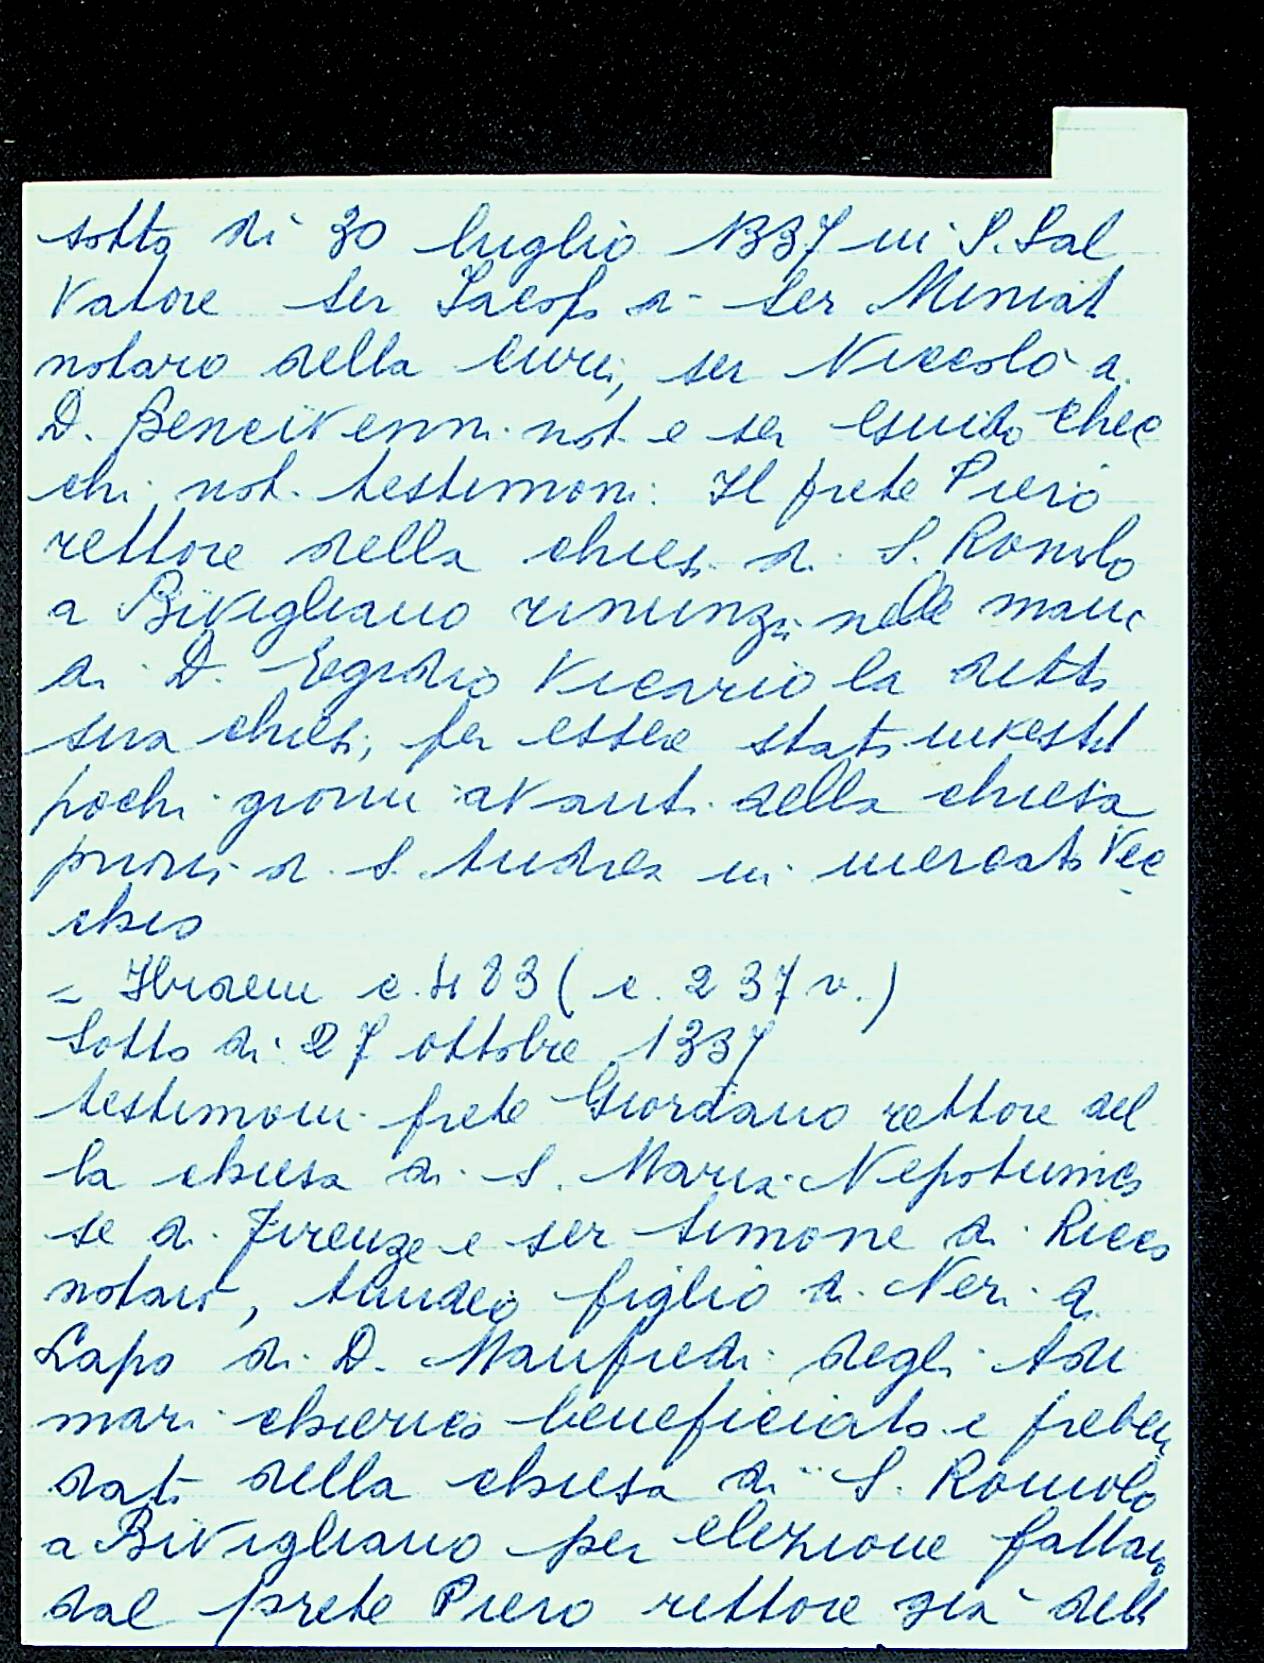 sotto di 30 luglio 1337 in S. Sal
vatore ser Jacopo di ser Miniat
notaro della curia, ser Niccolò di
D. Bencivenni not. e ser Guido Chec
chi not. testimoni: Il prete Piero
rettore della chiesa di S. Romolo
a Bivigliano rinunzia nelle mani
di D. Egidio Vicario la detta
sua chiesa, per essere stato investit
pochi giorni avanti della chiesa
priori di S. Andrea in mercato Vec
chio
= Ibidem c. 483 ( c. 237 v. )
Sotto di 27 ottobre 1337
testimoni prete Giordano rettore del
la chiesa di S. Maria Nepotumco
se di Firenze e ser Simone di Ricco
notaro, Amideo figlio di Neri di
Lapo di D. Manfredi degli Adi
mari chierico beneficiato e preben
dato della chiesa di S. Romolo
a Bivigliano per elezione fattane
dal prete Piero rettore già dell